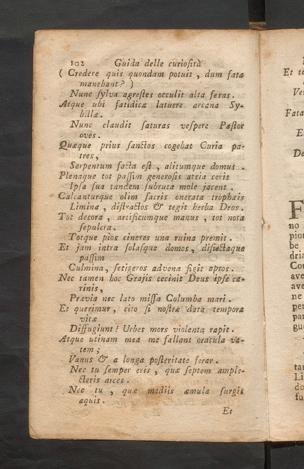 102 Guida delle curiosità
( Credere quis quondam potuit, dum fata
manebant? )
Nunc sylva agrestes occulit alta feras.
Atque ubi fatidicæ latuere arcana Sy-
billæ.
Nunc claudit saturas vespere Pastor
oves.
Quæque prius sanctos cogebat Curia pa-
tres,
Serpentum facta est, alitumque domus.
Plenaque tot passim generosis atria ceris
Ipsa sua tandem subruta mole jacent.
Calcanturque olim sacris onerata trophæis
Limina, distractos & tegit herba Deos.
Tot decora, artificumque manus, tot nota
sepulcra.
Totque pios cineres una ruina premit.
Et jam intra solasque domos, disjectaque
passim
Culmina, setigeros advena figit apros.
Nec tamen hoc Grajis cecinit Deus ipse ca-
rinis,
Prævia nec lato missa Columba mari.
Et querimur, cito si nostræ data tempora
vitæ
Diffugiunt? Urbes mors violenta rapit.
Atque utinam mea me fallant oracula va-
tem;
Vanus & a longa posteritate ferar.
Nec tu semper eris, quæ septemample-
cteris arces.
Nec tu, quæ mediis æmula surgis
aquis.
Et